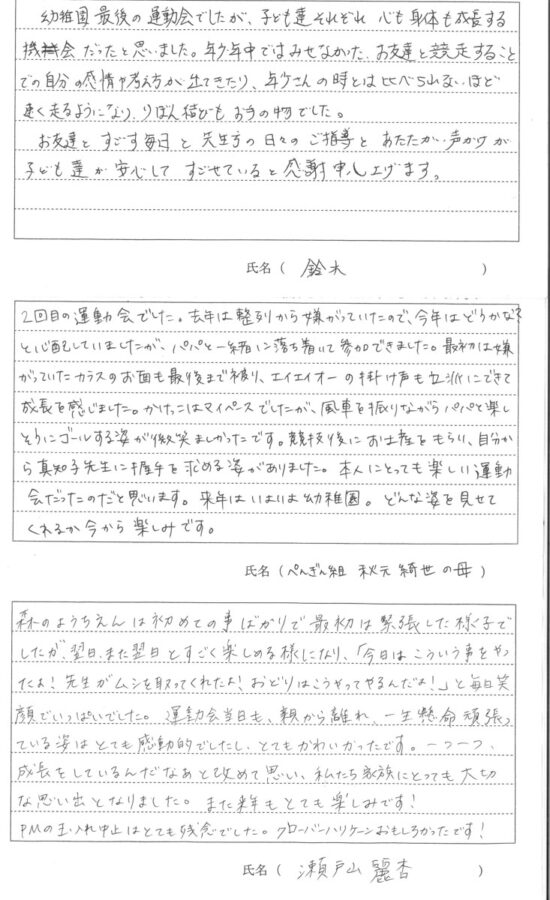 幼稚園最後の運動会でしたが、子ども達それぞれ 心も身体も成長する
機会だったと思いました。年少年中ではみせなかった お友達と競走すること
での自分の感情や考え方が 出てきたり、年少さんの時とは比べられないほど
速く走るようになり、りぼん結びも お手の物でした。
お友達と すごす毎日 と 先生方の 日々の ご指導と あたたかい声かけが
子ども達が 安心して すごせていると 感謝申し上げます。
氏名 ( 鈴木 )
2回目の運動会でした。去年は整列から嫌がっていたので、今年はどうかな?
と心配していましたが、パパと一緒に落ち着いて参加できました。最初は嫌
がっていたカラスのお面も最後まで被り、エイエイオーの掛け声も立派にできて
成長を感じました。かけっこはマイペースでしたが、風車を振りながらパパと楽し
そうにゴールする姿が微笑ましかったです。競技後にお土産をもらい、自分か
ら真知子先生に握手を求める姿がありました。本人にとっても楽しい運動
会だったのだと思います。来年はいよいよ幼稚園。どんな姿を見せて
くれるか今から楽しみです。
氏名 (ぺんぎん組 秋元 綺世 の母 )
森のようちえんは初めての事ばかりで最初は緊張した様子で
したが、翌日、また翌日とすごく楽しめる様になり、「今日はこういう事をやっ
たよ! 先生がムシを取ってくれたよ! おどりはこうやってやるんだよ!」と毎日笑
顔でいっぱいでした。運動会当日も、親から離れ、一生懸命頑張っ
ている姿はとても感動的でしたし、とてもかわいかったです。一つ一つ、
成長をしているんだなあと改めて思い、私たち家族にとっても大切
な思い出となりました。また来年もとても楽しみです!
PMの玉入れ中止はとても残念でした。クローバーハリケーンおもしろかったです!
氏名 ( 瀬戸山 麗杏 )